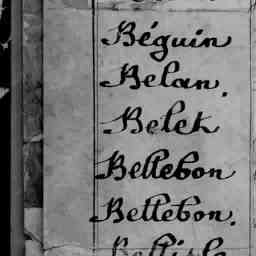 Béguin
Belan.
Belek
Bellebon
Bellebon.
Bellisle